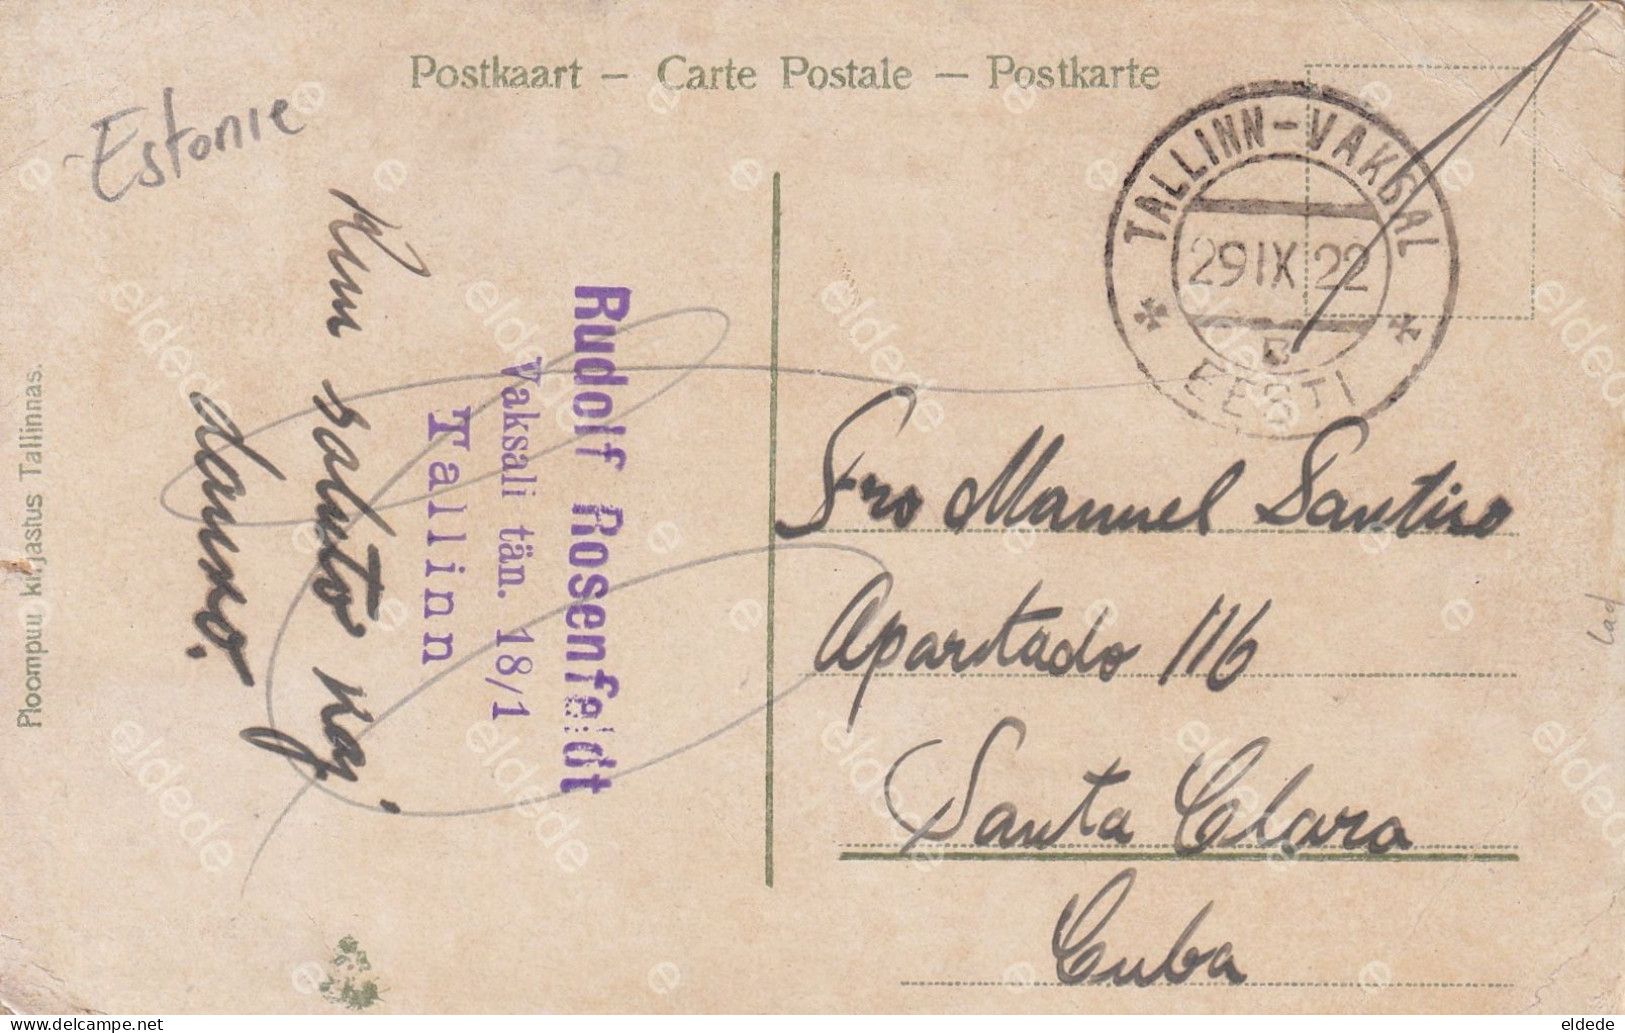 Postkaart – Carte Postale – Postkarte
Estonie
TALLINN-VAKSAL
29 IX 22
EESTI
Rudolf Rosenfeldt
Vaksali tän. 18/1
Tallinn
Kun saluto kaj
danko.
Sro Manuel Santiso
Apartado 116
Santa Clara
Cuba
Ploompuu kirjastus Tallinnas.
Lad
eldede